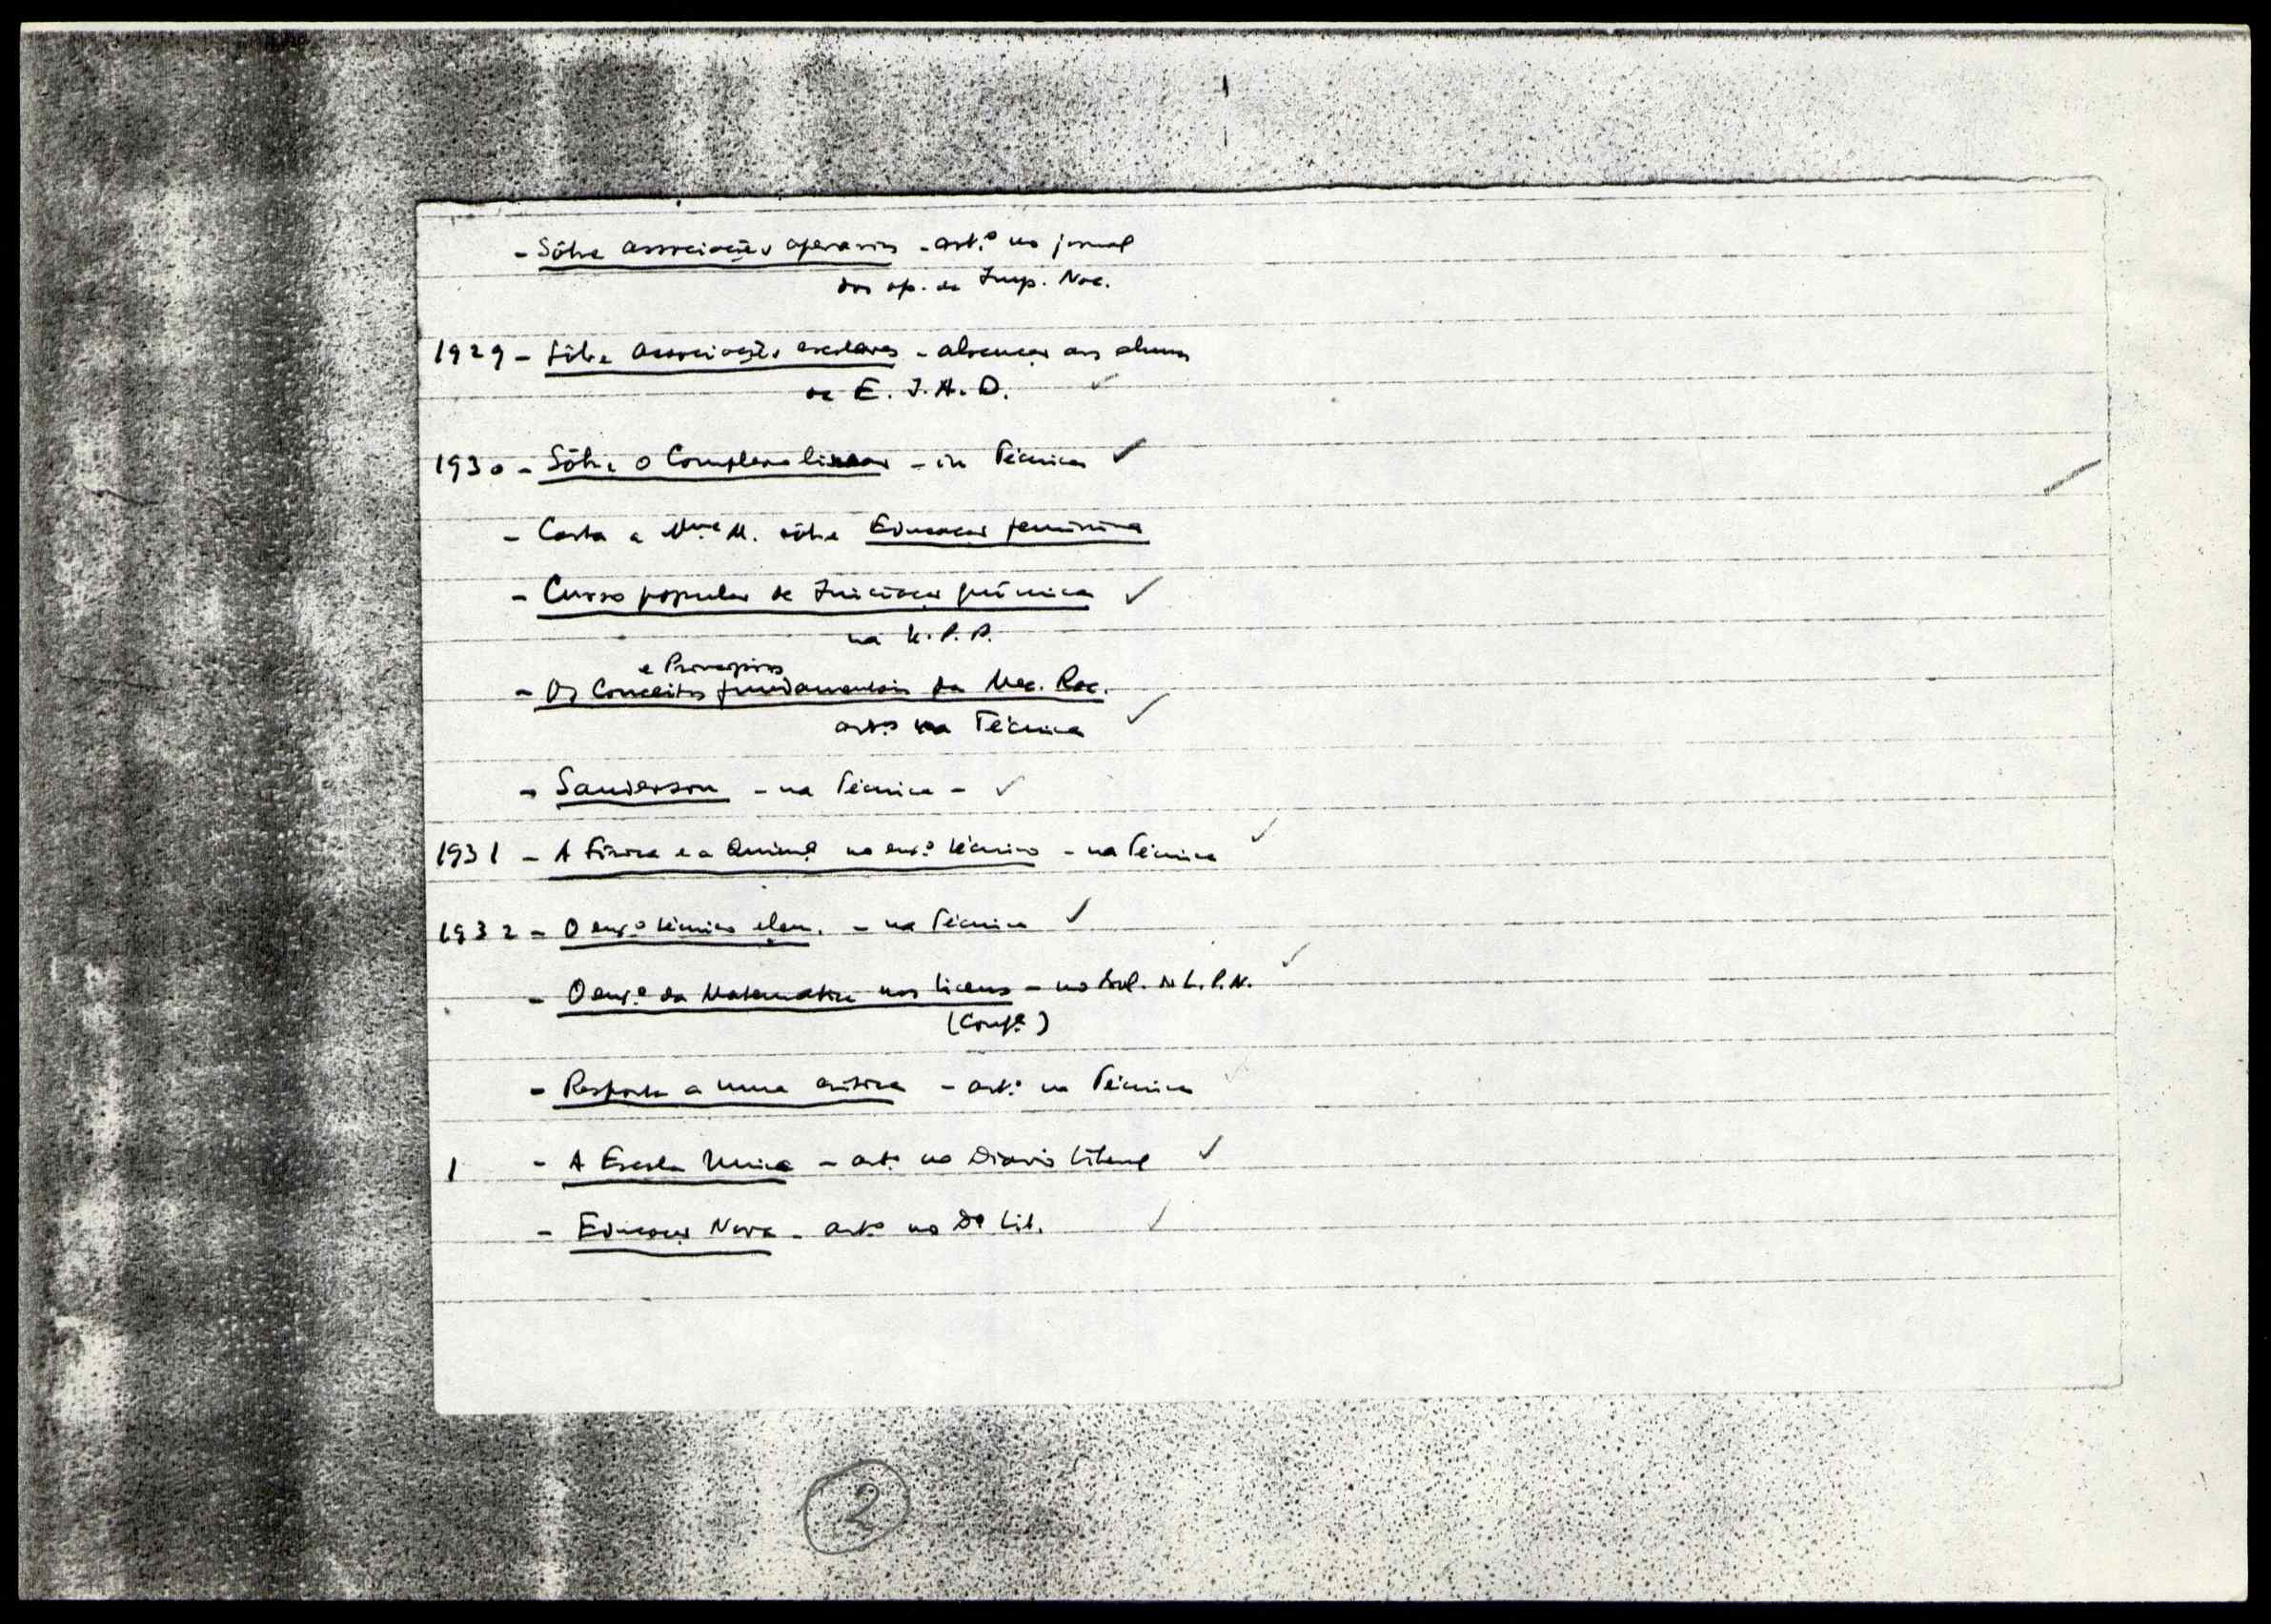 - Sôbre associações operarias - art.º no jornal
dos op. da Imp. Nac.
1929 - Sôbre Associações escolares - alocução aos alunos
da E. I. A. D.
1930 - Sôbre o Complexo linear - in Técnica ✓
- Carta a M.me M. sôbre Educação feminina
- Curso popular de Iniciação química ✓
na U. P. P.
e Princípios
- Os Conceitos fundamentais da Mec. Rac.
art.os na Técnica ✓
- Sanderson - na Técnica - ✓
1931 - A Física e a Quimª no ens.º técnico - na Técnica ✓
1932 - O ens.º técnico elem. - na Técnica ✓
- O ens.º da Matematica nos liceus - no Bol. do L. P. N. ✓
(Confª)
- Resposta a uma critica - art.º na Técnica
1 - A Escola Unica - art.º no Diario Liberal ✓
- Educação Nova - art.º no Dº Lib. ✓
2